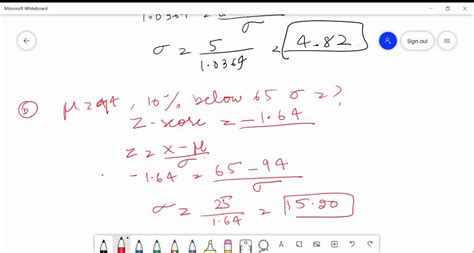 Microsoft Whiteboard
1.0364 =
σ
σ = 5 / 1.0364 = 4.82
Sign out
b μ = 94, 10% below 65 σ = ?
Z-score = -1.64
Z = x - μ / σ
-1.64 = 65 - 94 / σ
σ = 25 / 1.64 = 15.20